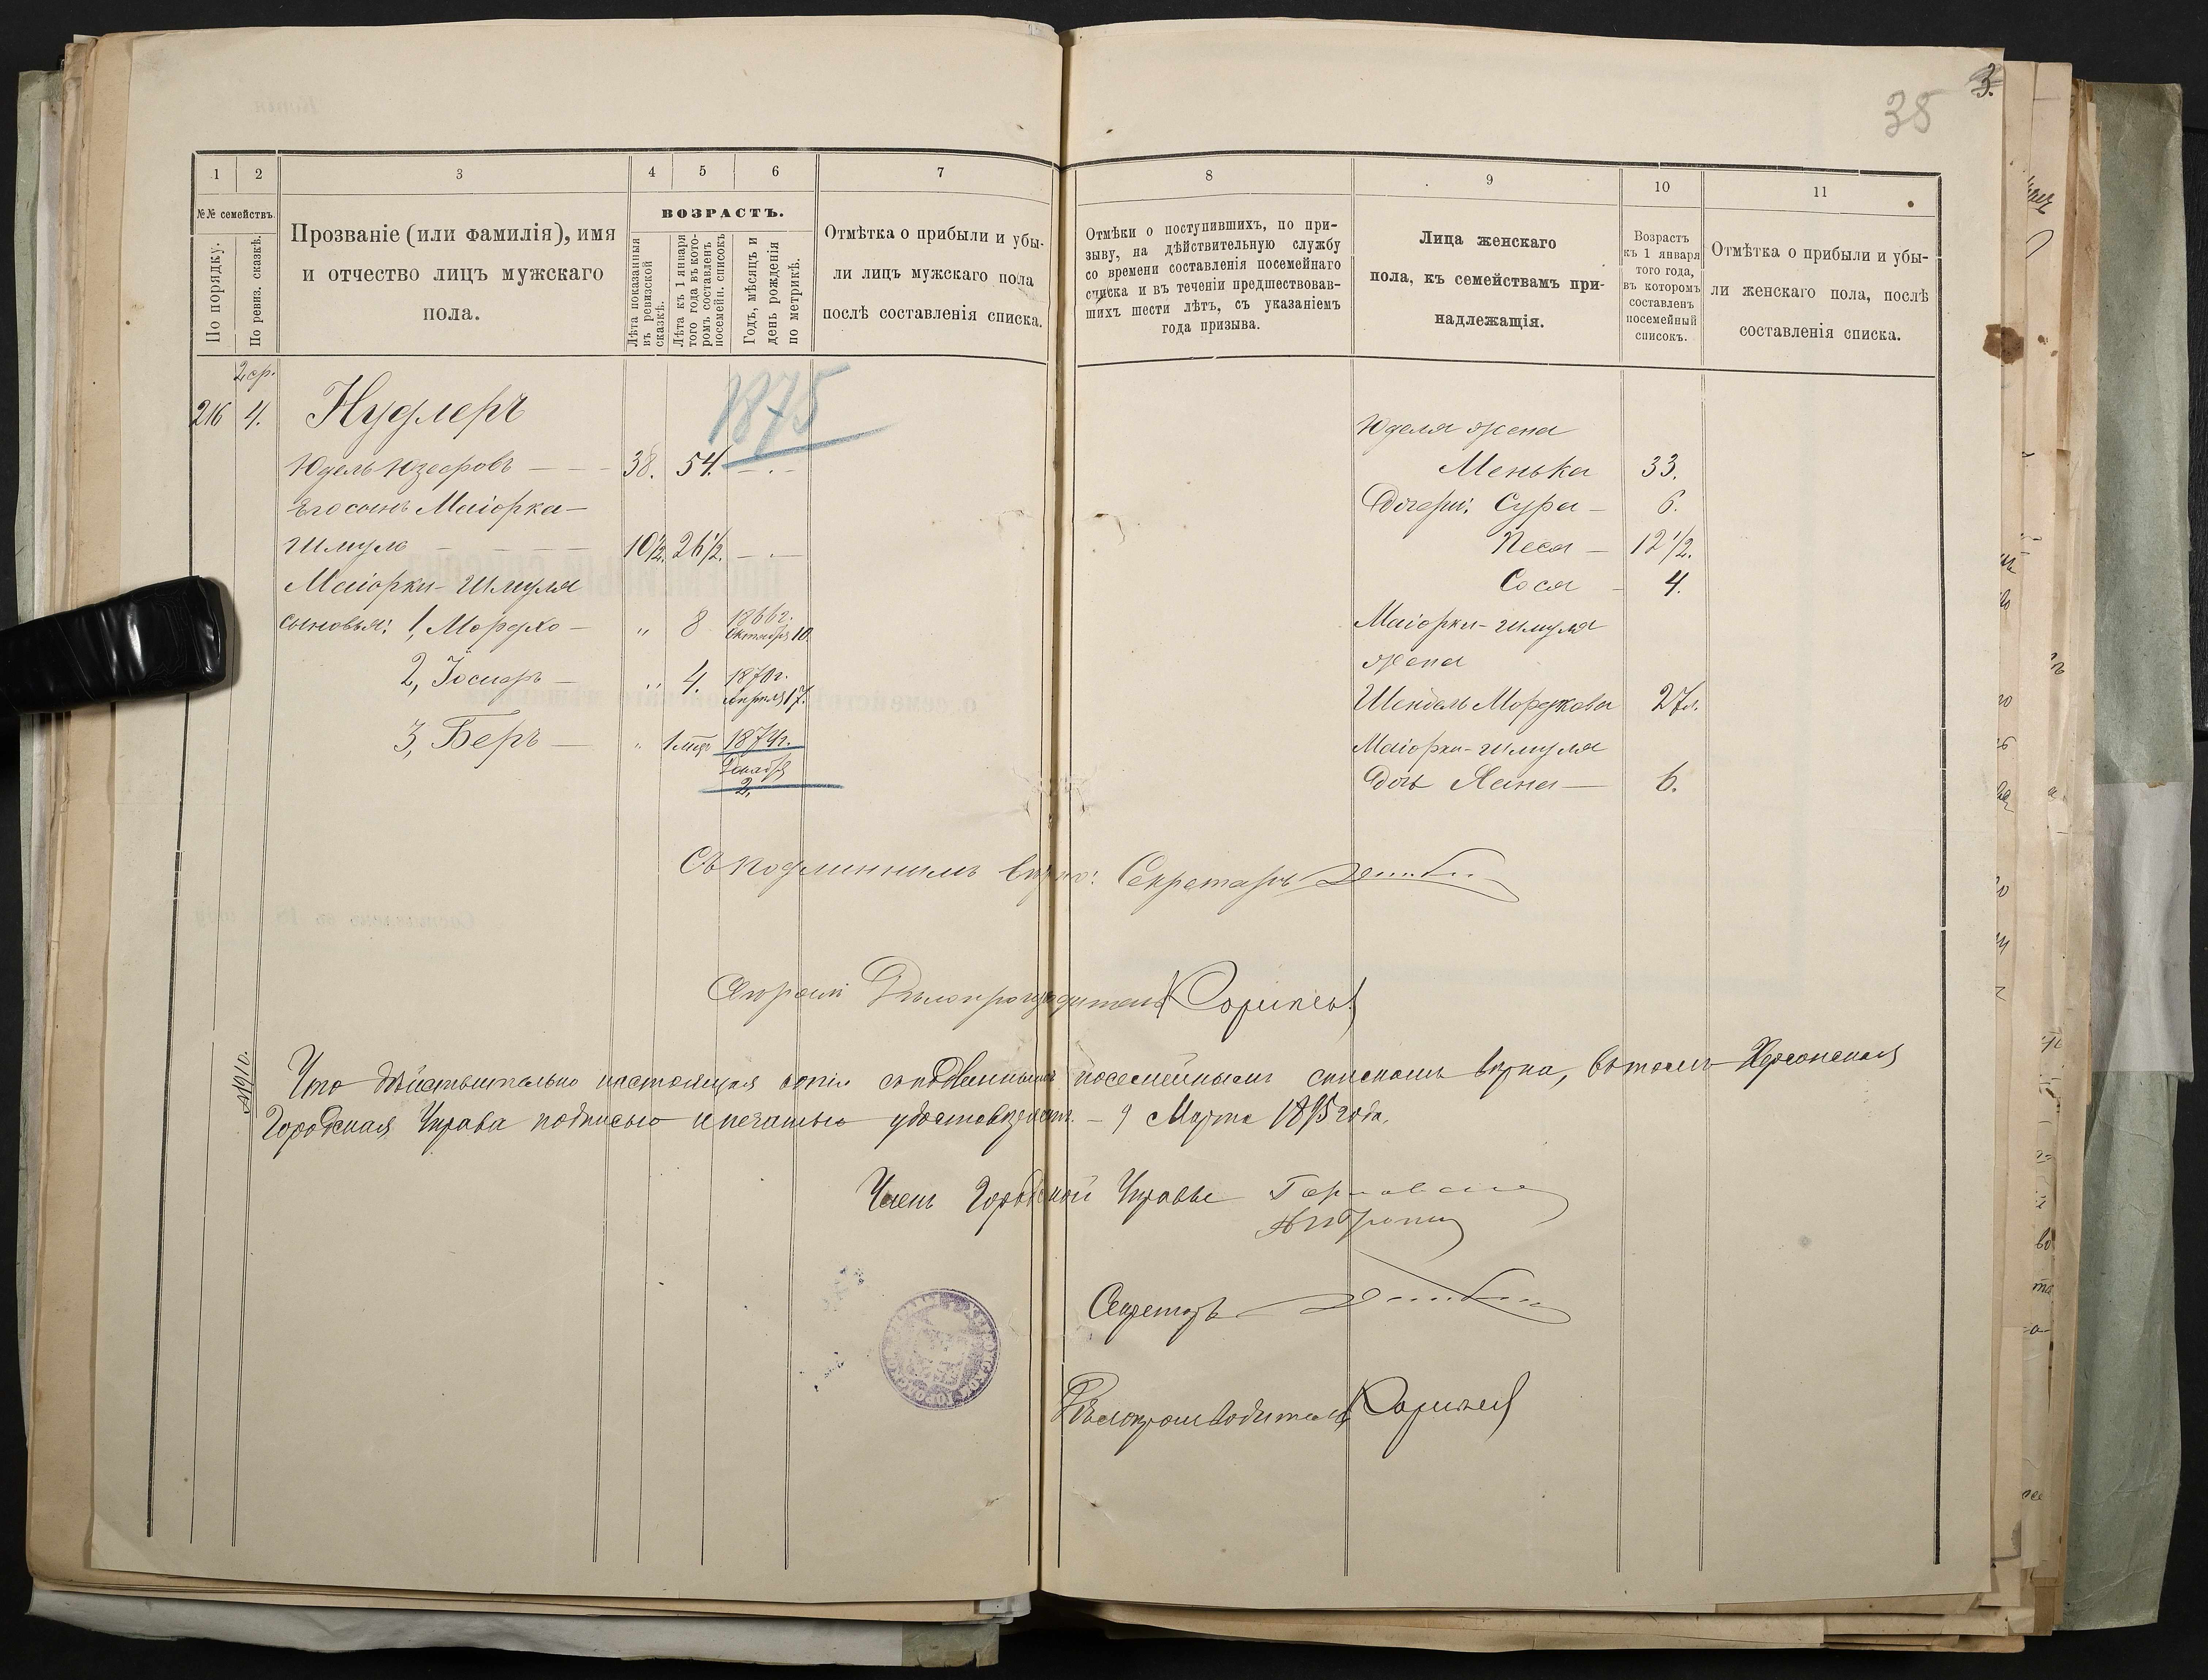 3.
38
1
2
3
4
5
6
7
8
9
10
11
№№ семействъ.
По порядку.
По ревиз. сказкѣ.
Прозваніе (или фамилія), имя
и отчество лицъ мужскаго
пола.
ВОЗРАСТЪ.
Лѣта показанныя
въ ревизской
сказкѣ.
Лѣта къ 1 января
того года въ кото-
ромъ составленъ
посемейн. списокъ
Годъ, мѣсяцъ и
день рожденія
по метрикѣ.
Отмѣтка о прибыли и убы-
ли лицъ мужскаго пола
послѣ составленія списка.
Отмѣки о поступившихъ, по при-
зыву, на дѣйствительную службу
со времени составленія посемейнаго
списка и въ теченіи предшествовав-
шихъ шести лѣтъ, съ указаніемъ
года призыва.
Лица женскаго
пола, къ семействамъ при-
надлежащія.
Возрастъ
къ 1 января
того года,
въ которомъ
составленъ
посемейный
списокъ.
Отмѣтка о прибыли и убы-
ли женскаго пола, послѣ
составленія списка.
2ср.
216 4. Нудлеръ
1875
Юдель Юзефовъ — 38. 54. — . —
Его сынъ Маіорка —
Шмуль — 10½. 26½. — . —
Маіорки-Шмуля
сыновья: 1, Мордхо — „ 8 1866г. Октября 10.
2, Іосифъ — „ 4. 1870г. Апрѣля 17.
3, Беръ — „ 1 мѣс. 1874г. Декабря 2.
Юделя жена
Менька 33.
Дочери: Сура — 6.
Песя — 12½.
Сося — 4.
Маіорки-Шмуля
жена
Шендель Мордкова 27л.
Маіорки-Шмуля
Дочь Хана — 6.
Съ подлиннымъ вѣрно: Секретарь
Скрѣпилъ Дѣлопроизводитель
№910.
Что дѣйствительно настоящая копія съ подлиннымъ посемейнымъ спискомъ вѣрна, въ томъ Херсонская
Городская Управа подписью и печатью удостовѣряетъ. — 9 Марта 1895 года.
Членъ Городской Управы
Секретарь
Дѣлопроизводитель